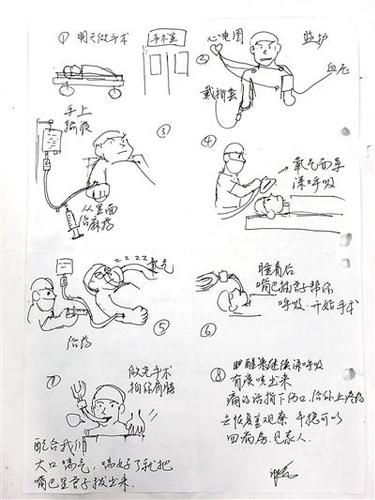 ① 明天做手术
手术室
②
心电图
监护
血压
戴指套
手上
输液
③
从里面
给麻药
④
氧气面罩
深呼吸
zzzz
氧气
给药
⑤
睡着后
嘴巴插管子帮你
呼吸.开始手术
⑥
⑦
做完手术
拍你肩膀
配合我们
大口喘气,喘好了就把
嘴巴里管子拔出来.
⑧
甲醒来继续深呼吸
有痰咳出来
痛的话指下伤口,给你上疼药
去恢复室观察 平稳可以
回病房.见家人.